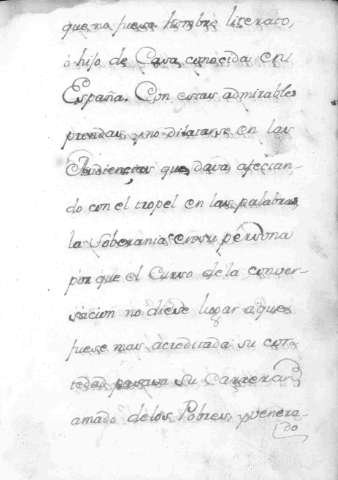 que no fuese hombre literato,
ò hijo de Casa conocida en
España. Con estas admirables
prendas, y no dilatarse en las
Audiencias que dava afectan-
do con el tropel en las palabras
la soberania en su persona
por que el Curso de la conver-
sacion no diese lugar a que
fuese mas acreditada su cor-
tedad su Carrera,
amado delos Pobres, y venera-
do